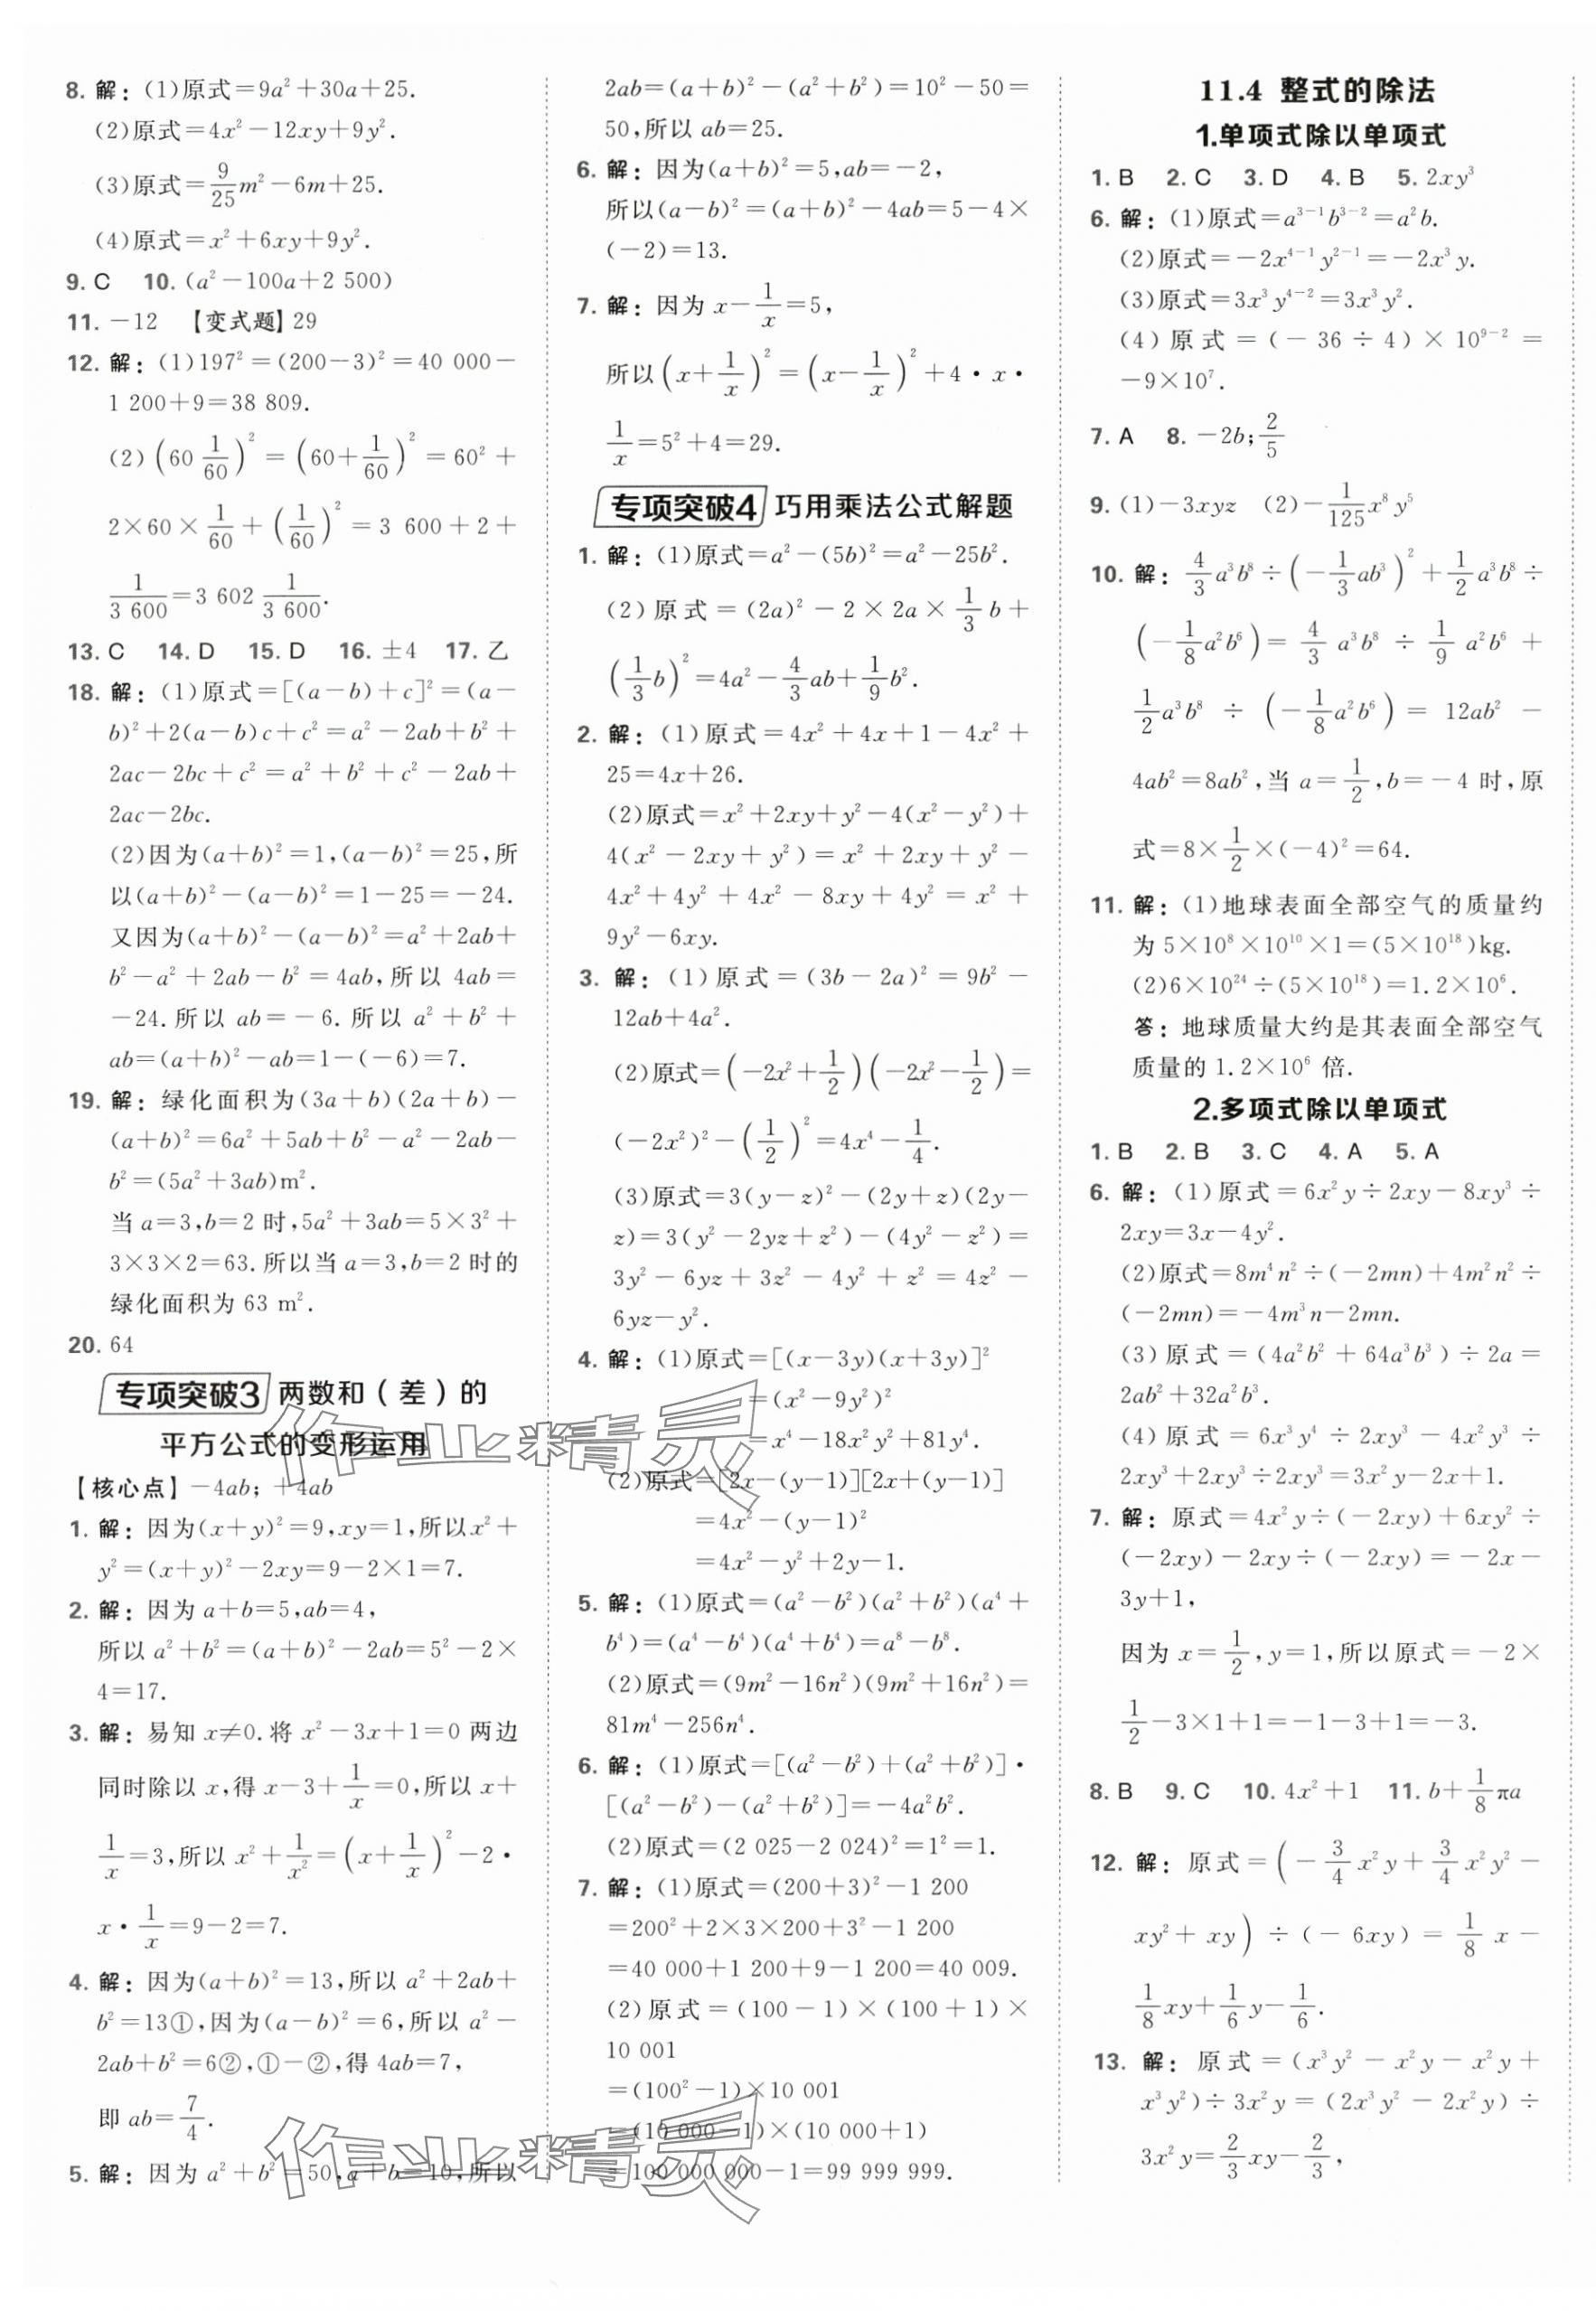 8. 解：(1)原式=9a²+30a+25.
(2)原式=4x²-12xy+9y².
(3)原式=9/25m²-6m+25.
(4)原式=x²+6xy+9y².
9. C 10. (a²-100a+2 500)
11. -12 【变式题】29
12. 解：(1)197²=(200-3)²=40 000-
1 200+9=38 809.
(2)(60 1/60)²=(60+1/60)²=60²+
2×60×1/60+(1/60)²=3 600+2+
1/3 600=3 602 1/3 600.
13. C 14. D 15. D 16. ±4 17. 乙
18. 解：(1)原式=[(a-b)+c]²=(a-
b)²+2(a-b)c+c²=a²-2ab+b²+
2ac-2bc+c²=a²+b²+c²-2ab+
2ac-2bc.
(2)因为(a+b)²=1,(a-b)²=25,所
以(a+b)²-(a-b)²=1-25=-24.
又因为(a+b)²-(a-b)²=a²+2ab+
b²-a²+2ab-b²=4ab,所以 4ab=
-24.所以 ab=-6.所以 a²+b²+
ab=(a+b)²-ab=1-(-6)=7.
19. 解：绿化面积为(3a+b)(2a+b)-
(a+b)²=6a²+5ab+b²-a²-2ab-
b²=(5a²+3ab)m².
当 a=3,b=2 时,5a²+3ab=5×3²+
3×3×2=63.所以当 a=3,b=2 时的
绿化面积为 63 m².
20. 64
专项突破3 两数和（差）的
平方公式的变形运用
【核心点】-4ab；+4ab
1. 解：因为(x+y)²=9,xy=1,所以x²+
y²=(x+y)²-2xy=9-2×1=7.
2. 解：因为 a+b=5,ab=4,
所以 a²+b²=(a+b)²-2ab=5²-2×
4=17.
3. 解：易知 x≠0.将 x²-3x+1=0 两边
同时除以 x,得 x-3+1/x=0,所以 x+
1/x=3,所以 x²+1/x²=(x+1/x)²-2·
x·1/x=9-2=7.
4. 解：因为(a+b)²=13,所以 a²+2ab+
b²=13①,因为(a-b)²=6,所以 a²-
2ab+b²=6②,①-②,得 4ab=7,
即 ab=7/4.
5. 解：因为 a²+b²=50,a+b=10,所以
2ab=(a+b)²-(a²+b²)=10²-50=
50,所以 ab=25.
6. 解：因为(a+b)²=5,ab=-2,
所以(a-b)²=(a+b)²-4ab=5-4×
(-2)=13.
7. 解：因为 x-1/x=5,
所以(x+1/x)²=(x-1/x)²+4·x·
1/x=5²+4=29.
专项突破4 巧用乘法公式解题
1. 解：(1)原式=a²-(5b)²=a²-25b².
(2)原式=(2a)²-2×2a×1/3b+
(1/3b)²=4a²-4/3ab+1/9b².
2. 解：(1)原式=4x²+4x+1-4x²+
25=4x+26.
(2)原式=x²+2xy+y²-4(x²-y²)+
4(x²-2xy+y²)=x²+2xy+y²-
4x²+4y²+4x²-8xy+4y²=x²+
9y²-6xy.
3. 解：(1)原式=(3b-2a)²=9b²-
12ab+4a².
(2)原式=(-2x²+1/2)(-2x²-1/2)=
(-2x²)²-(1/2)²=4x⁴-1/4.
(3)原式=3(y-z)²-(2y+z)(2y-
z)=3(y²-2yz+z²)-(4y²-z²)=
3y²-6yz+3z²-4y²+z²=4z²-
6yz-y².
4. 解：(1)原式=[(x-3y)(x+3y)]²
=(x²-9y²)²
=x⁴-18x²y²+81y⁴.
(2)原式=[2x-(y-1)][2x+(y-1)]
=4x²-(y-1)²
=4x²-y²+2y-1.
5. 解：(1)原式=(a²-b²)(a²+b²)(a⁴+
b⁴)=(a⁴-b⁴)(a⁴+b⁴)=a⁸-b⁸.
(2)原式=(9m²-16n²)(9m²+16n²)=
81m⁴-256n⁴.
6. 解：(1)原式=[(a²-b²)+(a²+b²)]·
[(a²-b²)-(a²+b²)]=-4a²b².
(2)原式=(2 025-2 024)²=1²=1.
7. 解：(1)原式=(200+3)²-1 200
=200²+2×3×200+3²-1 200
=40 000+1 200+9-1 200=40 009.
(2)原式=(100-1)×(100+1)×
10 001
=(100²-1)×10 001
=(10 000-1)×(10 000+1)
=100 000 000-1=99 999 999.
11.4 整式的除法
1.单项式除以单项式
1. B 2. C 3. D 4. B 5. 2xy³
6. 解：(1)原式=a³⁻¹b³⁻²=a²b.
(2)原式=-2x⁴⁻¹y²⁻¹=-2x³y.
(3)原式=3x³y⁴⁻²=3x³y².
(4)原式=(-36÷4)×10⁹⁻²=
-9×10⁷.
7. A 8. -2b;2/5
9. (1)-3xyz (2)-1/125x⁸y⁵
10. 解：4/3a³b⁸÷(-1/3ab³)²+1/2a³b⁸÷
(-1/8a²b⁶)=4/3a³b⁸÷1/9a²b⁶+
1/2a³b⁸÷(-1/8a²b⁶)=12ab²-
4ab²=8ab²,当 a=1/2,b=-4 时,原
式=8×1/2×(-4)²=64.
11. 解：(1)地球表面全部空气的质量约
为 5×10⁸×10¹⁰×1=(5×10¹⁸)kg.
(2)6×10²⁴÷(5×10¹⁸)=1.2×10⁶.
答：地球质量大约是其表面全部空气
质量的 1.2×10⁶ 倍.
2.多项式除以单项式
1. B 2. B 3. C 4. A 5. A
6. 解：(1)原式=6x²y÷2xy-8xy³÷
2xy=3x-4y².
(2)原式=8m⁴n²÷(-2mn)+4m²n²÷
(-2mn)=-4m³n-2mn.
(3)原式=(4a²b²+64a³b³)÷2a=
2ab²+32a²b³.
(4)原式=6x³y⁴÷2xy³-4x²y³÷
2xy³+2xy³÷2xy³=3x²y-2x+1.
7. 解：原式=4x²y÷(-2xy)+6xy²÷
(-2xy)-2xy÷(-2xy)=-2x-
3y+1,
因为 x=1/2,y=1,所以原式=-2×
1/2-3×1+1=-1-3+1=-3.
8. B 9. C 10. 4x²+1 11. b+1/8πa
12. 解：原式=(-3/4x²y+3/4x²y²-
xy²+xy)÷(-6xy)=1/8x-
1/8xy+1/6y-1/6.
13. 解：原式=(x³y²-x²y-x²y+
x³y²)÷3x²y=(2x³y²-2x²y)÷
3x²y=2/3xy-2/3,
作业精灵
作业精灵